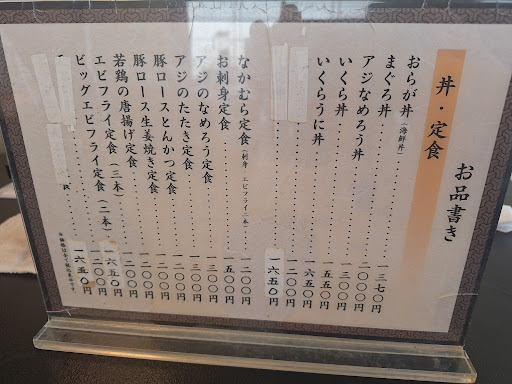 お品書き
丼・定食
おらが丼(海鮮丼)……一三七〇円
まぐろ丼……〇〇円
アジなめろう丼……一三〇〇円
いくら丼……一五五〇円
いくらうに丼……一六五〇円
……一二〇〇円
……一六五〇円
なかむら定食(刺身 エビフライ二本)……二〇〇円
お刺身定食……一五〇〇円
アジのなめろう定食……一三〇〇円
アジのたたき定食……一三〇〇円
豚ロースとんかつ定食……〇〇円
豚ロース生姜焼き定食……〇〇円
若鶏の唐揚げ定食……〇〇円
エビフライ定食(三本)……〇〇円
ビッグエビフライ定食(二本)……一六五〇円
一六五〇円